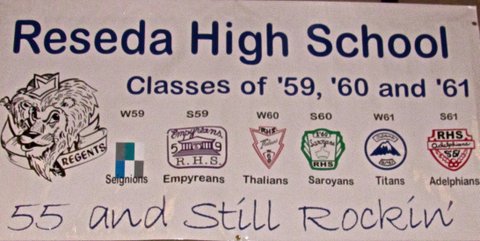 Reseda High School
Classes of '59, '60 and '61
W59 S59 W60 S60 W61 S61
REGENTS
Empyreans
59
R.H.S.
RHS
Thalians
RHS
Saroyans
RHS
Adelphians
S61
Seignions Empyreans Thalians Saroyans Titans Adelphians
55 and Still Rockin'